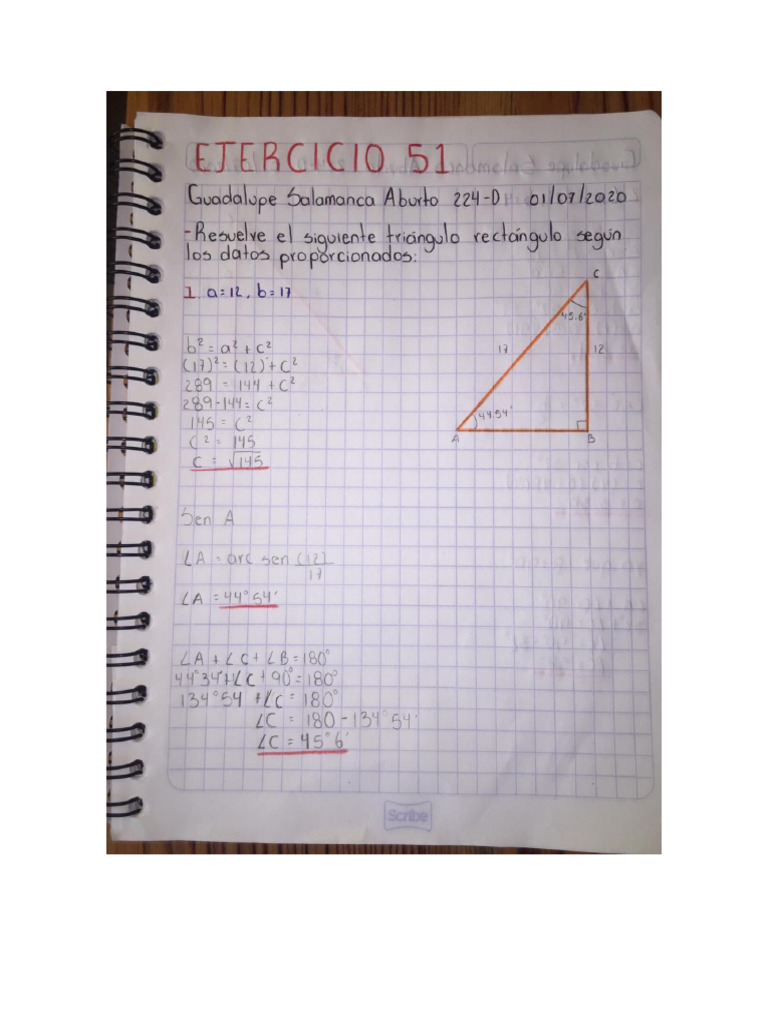 EJERCICIO 51
Guadalupe Salamanca Aburto 224-D 01/07/2020
-Resuelve el siguiente triángulo rectángulo según
los datos proporcionados:
1. a=12, b=17
C
45.6'
17
12
44.54'
A
B
b² = a² + c²
(17)² = (12)² + c²
289 = 144 + c²
289-144 = c²
145 = c²
c² = 145
c = √145
Sen A
∠A = arc sen (12)
17
∠A = 44°54'
∠A + ∠C + ∠B = 180°
44°34'+∠C + 90° = 180°
134°54 + ∠C = 180°
∠C = 180 - 134°54'
∠C = 45°6'
Scribe